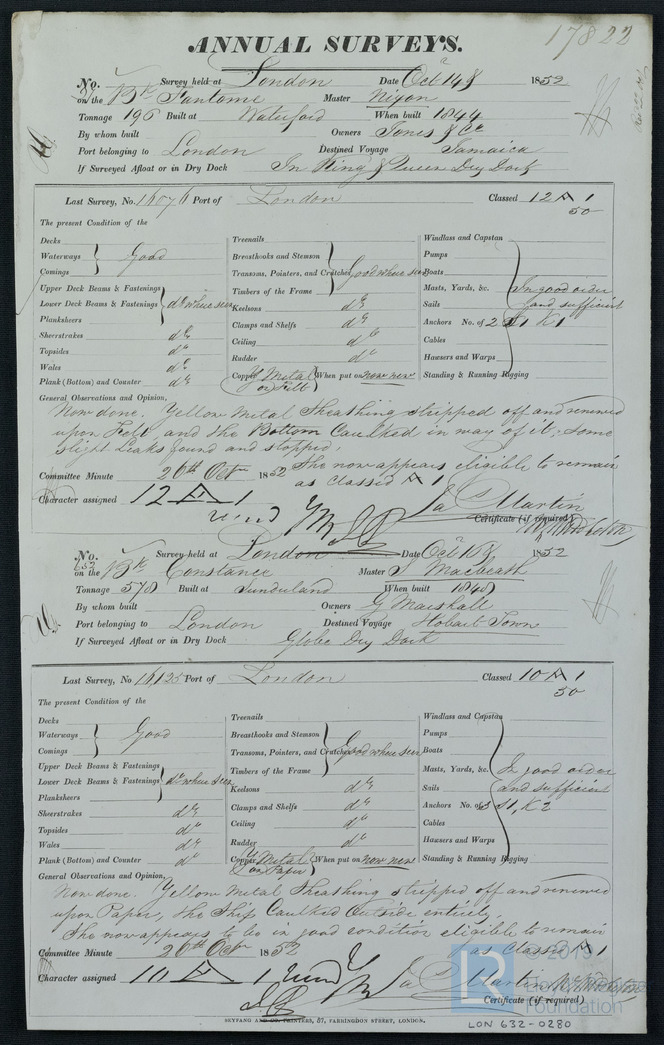 17822
ANNUAL SURVEYS.
No. Survey held at London Date Oct 14 1852
on the Bk Fantome Master Nixon
Tonnage 196 Built at Waterford When built 1844
By whom built Owners Jones & Co
Port belonging to London Destined Voyage Jamaica
If Surveyed Afloat or in Dry Dock In King & Queen Dry Dock
Last Survey, No. 16076 Port of London Classed 12 A 1
50
The present Condition of the
Decks
Waterways Good
Comings
Upper Deck Beams & Fastenings
Lower Deck Beams & Fastenings do where seen
Planksheers
Sheerstrakes do
Topsides do
Wales do
Plank (Bottom) and Counter do
Treenails
Breasthooks and Stemson
Transoms, Pointers, and Crutches Good where seen
Timbers of the Frame
Keelsons do
Clamps and Shelfs do
Ceiling do
Rudder do
Copper Y Metal on Felt When put on now new
Windlass and Capstan
Pumps
Boats
Masts, Yards, &c. In good order
Sails and sufficient
Anchors No. of 2 S1 K1
Cables
Hawsers and Warps
Standing & Running Rigging
General Observations and Opinion,
Now done. Yellow Metal Sheathing stripped off and renewed
upon Felt, and the Bottom Caulked in way of it; some
slight leaks found and stopped.
She now appears eligible to remain
as classed A 1
Committee Minute 20th Octr 1852
Character assigned 12 A 1
Ja S Martin
Certificate (if required)
No. Survey held at London Date Oct 18 1852
on the Bk Constance Master S Macbeath
Tonnage 578 Built at Sunderland When built 1848
By whom built Owners G Marshall
Port belonging to London Destined Voyage Hobart Town
If Surveyed Afloat or in Dry Dock Globe Dry Dock
Last Survey, No 16,125 Port of London Classed 10 A 1
50
The present Condition of the
Decks
Waterways Good
Comings
Upper Deck Beams & Fastenings
Lower Deck Beams & Fastenings do where seen
Planksheers
Sheerstrakes do
Topsides do
Wales do
Plank (Bottom) and Counter do
Treenails
Breasthooks and Stemson
Transoms, Pointers, and Crutches Good where seen
Timbers of the Frame
Keelsons do
Clamps and Shelfs do
Ceiling do
Rudder do
Copper Y Metal on Paper When put on now new
Windlass and Capstan
Pumps
Boats
Masts, Yards, &c. In good order
Sails and sufficient
Anchors No. of S1, K2
Cables
Hawsers and Warps
Standing & Running Rigging
General Observations and Opinion,
Now done. Yellow Metal Sheathing stripped off and renewed
upon Paper, the Ship Caulked outside entirely.
She now appears to be in good condition eligible to remain
as Classed A 1
Committee Minute 20th Octr 1852
Character assigned 10 A 1
Ja S Martin
Certificate (if required)
SEYFANG AND CO. PRINTERS, 57, FARRINGDON STREET, LONDON.
LR
2019
Foundation
LON 632-0280